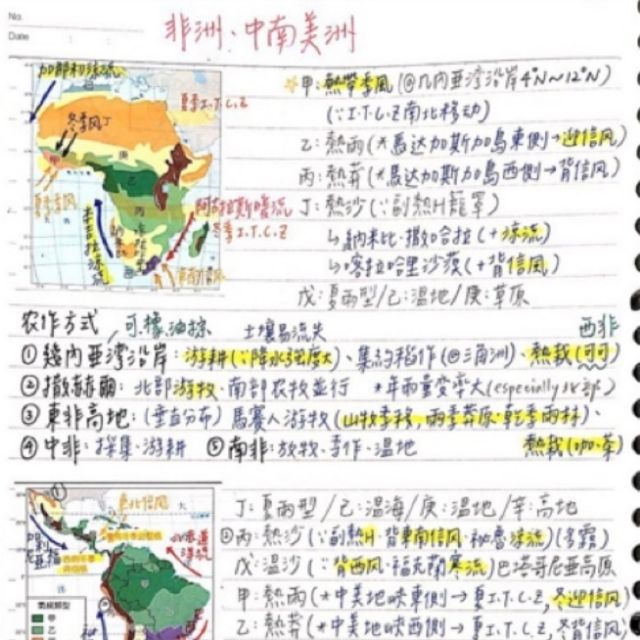 No.
Date
非洲、中南美洲
加那利涼流
夏季I.T.C.Z
冬季風丁
冬季I.T.C.Z
本吉拉涼流
甲:熱帶季風(@几內亞灣沿岸4°N~12°N)
(∵I.T.C.Z南北移動)
乙:熱雨(*馬達加斯加島東側→迎信風)
丙:熱莽(*馬達加斯加島西側→背信風)
丁:熱沙(∵副熱H籠罩)
↳納米比、撒哈拉(+涼流)
↳喀拉哈里沙漠(+背信風)
戊:夏雨型/己:溫地/庚:草原
農作方式 可、橡、油棕 土壤易流失 西非
①幾內亞灣沿岸:游耕(∵降水強度大)、集約稻作(@三角洲)、熱栽(可可)
②撒赫爾:北部游牧、南部農牧並行 *年雨量變率大(especially SR部)
③東非高地:(垂直分布)馬賽人游牧(山牧季移,雨季莽原、乾季雨林)、
④中非:採集、游耕 ⑤南非:放牧、季作、溫地 熱栽(咖、茶)
①
東北信風
丁:夏雨型/己:溫海/庚:溫地/辛:高地
②丙:熱沙(∵副熱H、背東南信風、秘魯涼流)(多霧)
戊:溫沙(∵背西風、福克蘭寒流)巴塔哥尼亞高原
甲:熱雨(*中美地峽東側→夏I.T.C.Z,冬迎信風)
乙:熱莽(*中美地峽西側→夏I.T.C.Z,冬背信風)
氣候類型
甲
乙